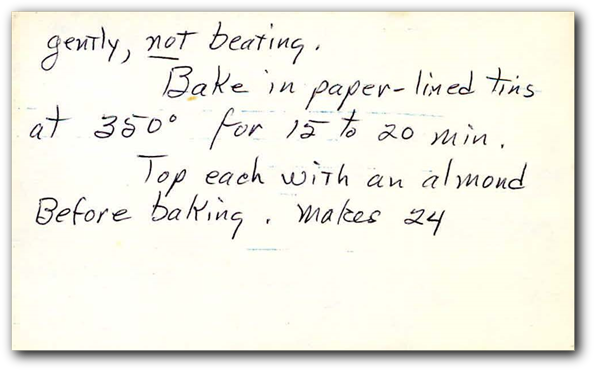 gently, not beating.
Bake in paper-lined tins
at 350° for 15 to 20 min.
Top each with an almond
Before baking. Makes 24